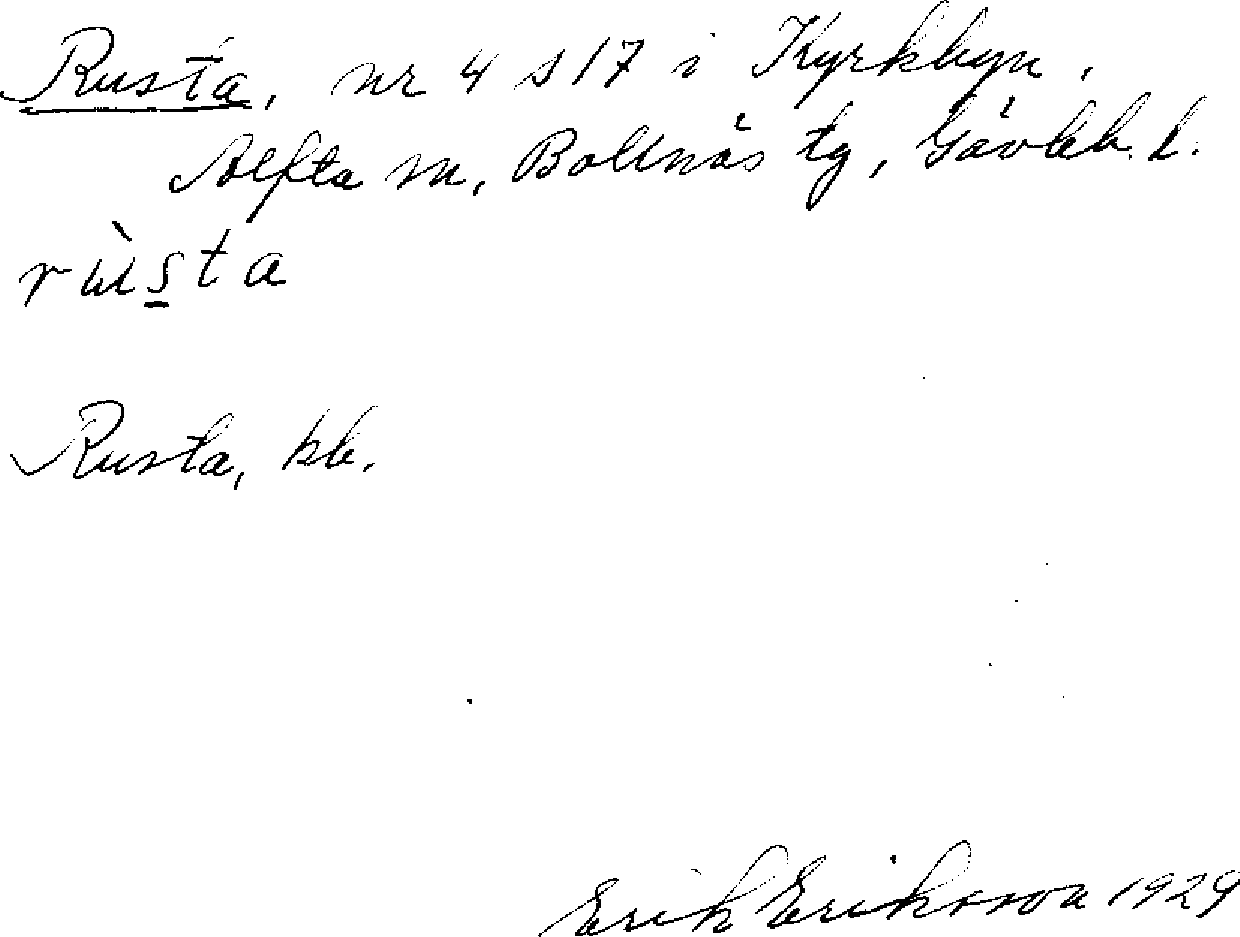 Rusta, nr 4 s 17 i Kyrkbyn,
Alfta sn, Bollnäs tg, Gävleb. l.
rùsta
Rusta, kb.
Erik Eriksson 1929